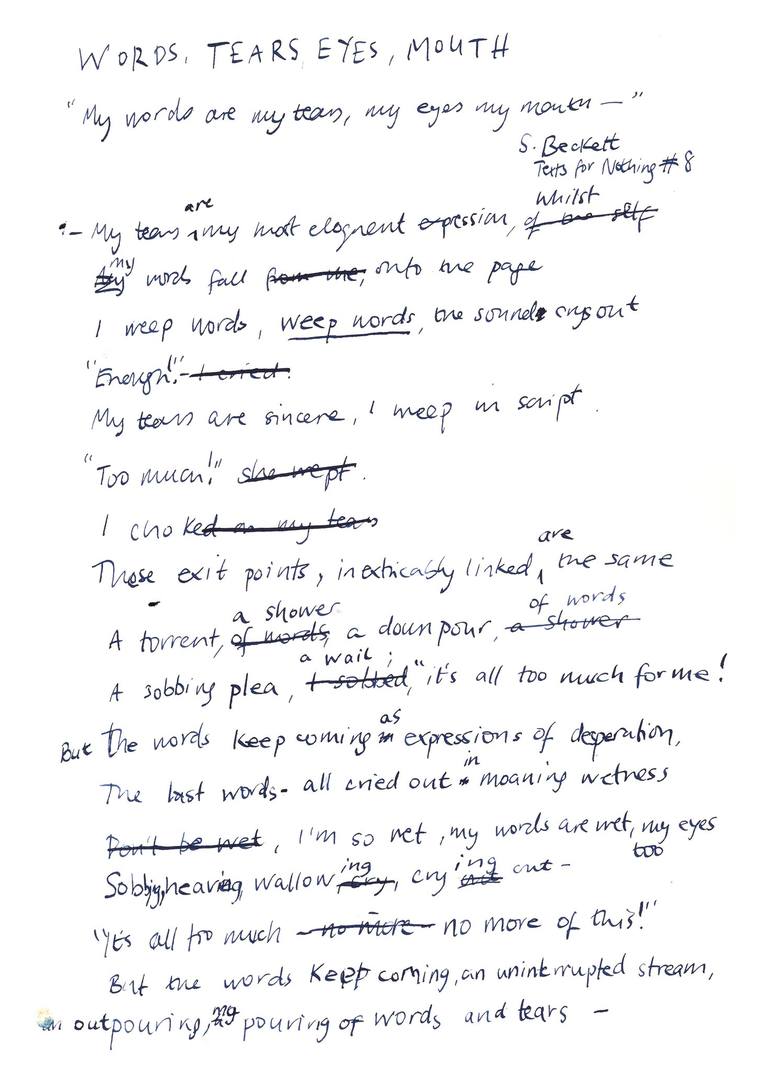 WORDS, TEARS, EYES, MOUTH
"My words are my tears, my eyes my mouth — "
S. Beckett
Texts for Nothing # 8
are
whilst
:- My tears my most eloquent expression, of the self
my
My words fall from me, onto the page
I weep words, weep words, the sounds crys out
"Enough!"- I cried.
My tears are sincere, I weep in script.
"Too much!" she wept.
I choked on my tears
are
These exit points, inextricably linked, the same
a shower
of words
A torrent, of words, a downpour, a shower
a wail;
A sobbing plea, I sobbed, "it's all too much for me!
as
But The words keep coming in expressions of desperation,
in
The last words- all cried out moaning wetness
Don't be wet, I'm so wet, my words are wet, my eyes
too
ing
ing
Sobbing, heaving, wallow cry, cry out out -
"It's all too much - no more - no more of this!"
But the words keep coming, an uninterrupted stream,
my
an outpouring, pouring of words and tears -